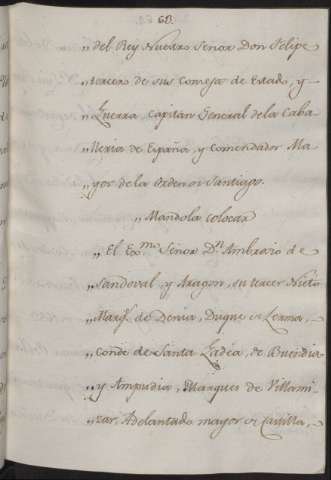 60.
„del Rey Nuestro Señor Don Felipe
„tercero de sus Consejos de Estado, y
„Guerra, Capitan General de la Caba
„lleria de España, y Comendador Ma
„yor de la Orden de Santiago.
„Mandola colocar
„El Ex.mo Señor D.n Ambrosio de
„Sandoval y Aragon, su tercer Nieto
„Marq.s de Denia, Duque de Lerma,
„Conde de Santa Gadea, de Buendia
„y Ampudia, Marques de Villami
„zar, Adelantado mayor de Castilla,